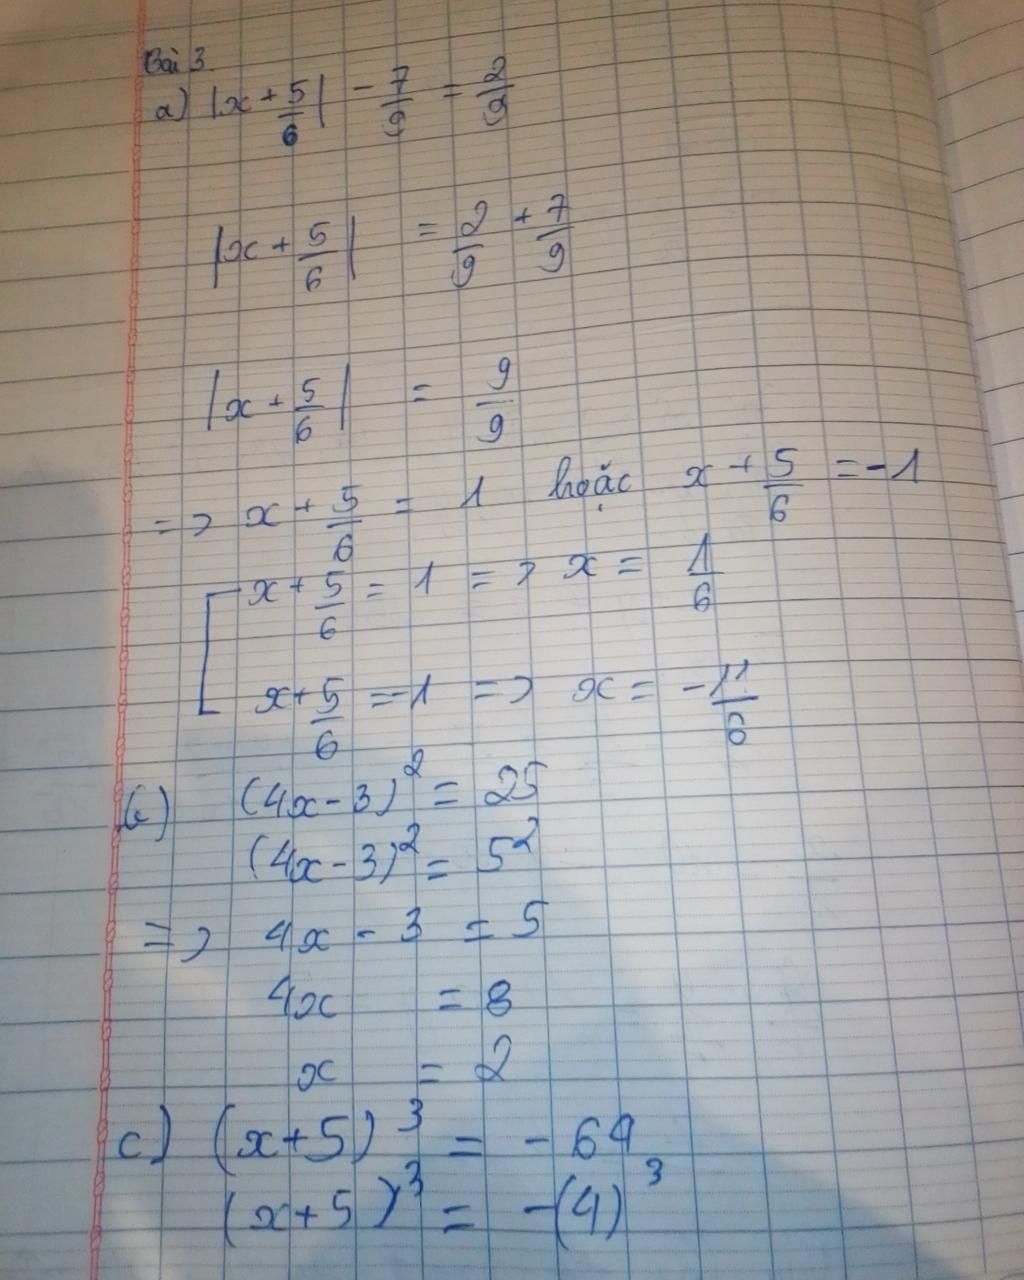 Bài 3
a) |x + 5/6| - 7/9 = 2/9
|x + 5/6| = 2/9 + 7/9
|x + 5/6| = 9/9
=> x + 5/6 = 1 hoặc x + 5/6 = -1
[ x + 5/6 = 1 => x = 1/6
x + 5/6 = -1 => x = -11/6
b) (4x - 3)² = 25
(4x - 3)² = 5²
=> 4x - 3 = 5
4x = 8
x = 2
c) (x + 5)³ = - 64
(x + 5)³ = -(4)³